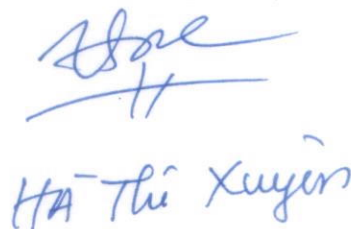 Hà Thị Xuyên